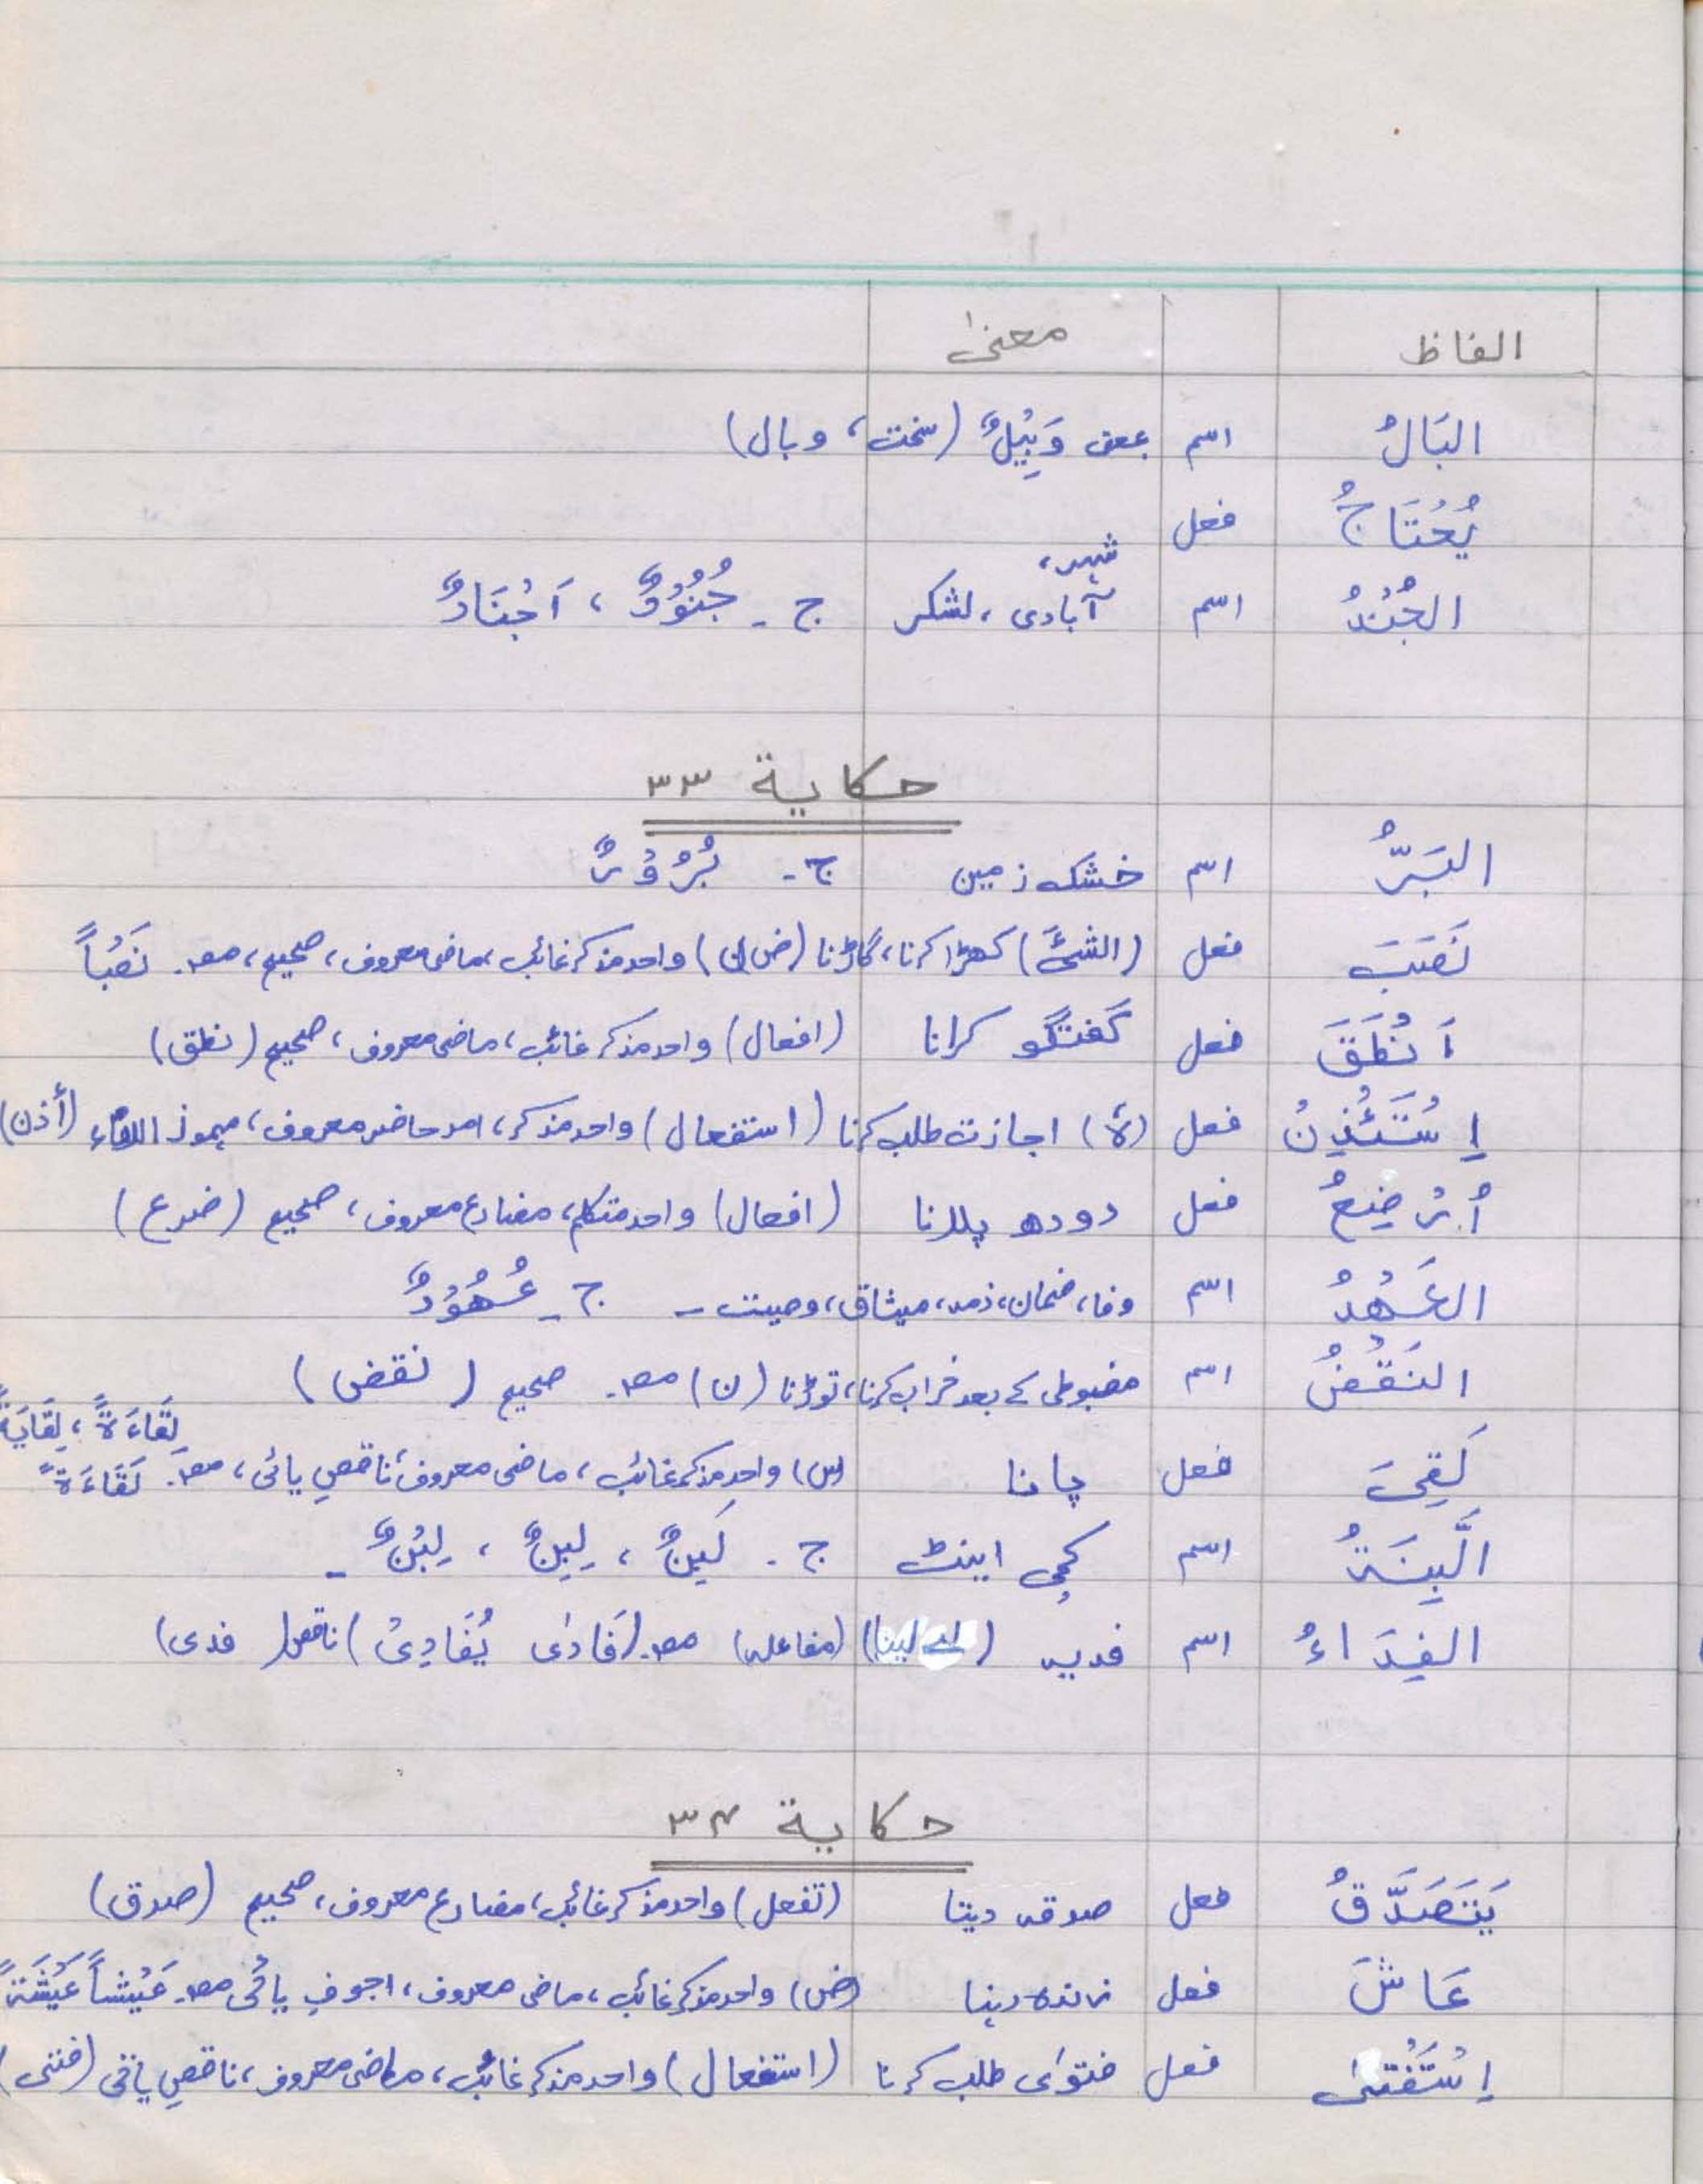 الفاظ معنیٰ
البَالُ اسم بمعنی وَبِیْلٌ (سخت، وبال)
یُحْتَاجُ فعل
شہر،
الجُنْدُ اسم آبادی، لشکر ج۔ جُنُوْدٌ، اَجْنَادٌ
حکایة ۳۳
البَرُّ اسم خشک زمین ج۔ بُرُوْرٌ
نَصَبَ فعل (الشئَ) کھڑا کرنا، گاڑنا (ض/ن) واحد مذکر غائب، ماضی معروف، صحیح، مصـ۔ نَصْباً
اَنْطَقَ فعل گفتگو کرانا (افعال) واحد مذکر غائب، ماضی معروف، صحیح (نطق)
اِسْتَئْذِنْ فعل (هٗ) اجازت طلب کرنا (استفعال) واحد مذکر، امر حاضر معروف، مہموز الفاء (أذن)
أُرْضِعُ فعل دودھ پلانا (افعال) واحد متکلم، مضارع معروف، صحیح (ضرع)
العَهْدُ اسم وفا، ضمان، ذمہ، میثاق، وصیت۔ ج۔ عُهُوْدٌ
النَقْضُ اسم مضبوطی کے بعد خراب کرنا، توڑنا (ن) مصـ۔ صحیح (نقض)
لِقَاءَةً، لِقَایَةً
لَقِیَ فعل پانا (س) واحد مذکر غائب، ماضی معروف، ناقصِ یائی، مصـ۔ لَقَاءَةً
الَّبِنَةُ اسم کچی اینٹ ج۔ لَبِنٌ، لِبِنٌ، لِبْنٌ۔
الفِدَاءُ اسم فدیہ (لے لینا) (مفاعلہ) مصـ۔ (فَادٰی یُفَادِیْ) ناقص (فدی)
حکایة ۳۴
یَتَصَدَّقُ فعل صدقہ دینا (تفعل) واحد مذکر غائب، مضارع معروف، صحیح (صدق)
عَاشَ فعل زندہ رہنا (ض) واحد مذکر غائب، ماضی معروف، اجوفِ یائی مصـ۔ عَیْشاً عَیْشَةً
اِسْتَفْتٰی فعل فتویٰ طلب کرنا (استفعال) واحد مذکر غائب، ماضی معروف، ناقصِ یائی (فتی)